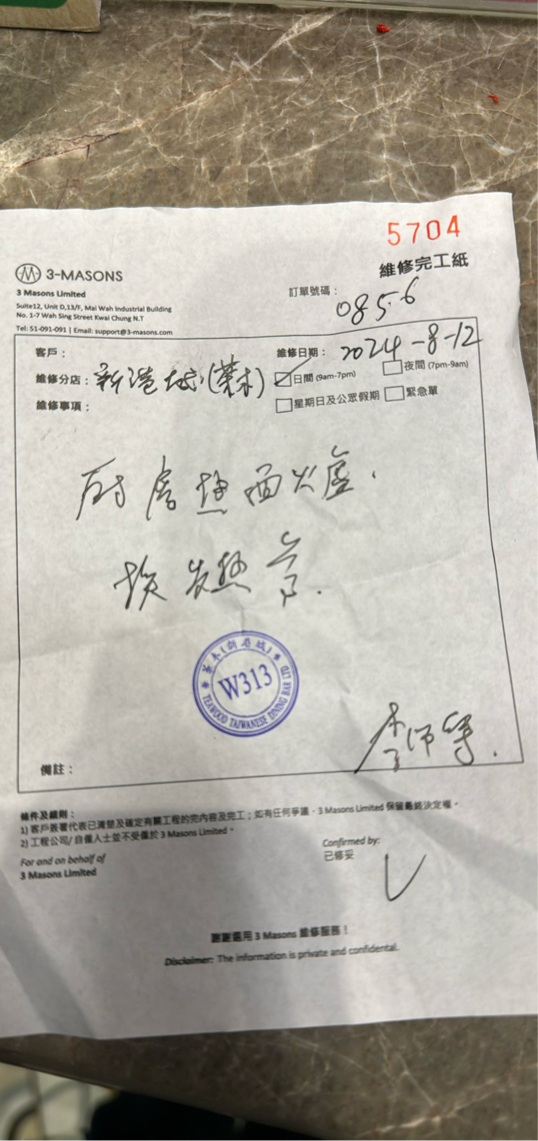 5704
維修完工紙
3-MASONS
3 Masons Limited
Suite12, Unit D,13/F, Mai Wah Industrial Building
No. 1-7 Wah Sing Street Kwai Chung N.T
Tel: 51-091-091 | Email: support@3-masons.com
訂單號碼：
0856
客戶：
維修日期： 2024-8-12
維修分店： 新港城(茶木)
日間 (9am-7pm) 夜間 (7pm-9am)
維修事項：
星期日及公眾假期 緊急單
厨房 面火爐.
换发热
茶木(新港城)
W313
TEAWOOD TAIWANESE DINING BAR LTD
李师傅.
備註：
條件及細則：
1) 客戶簽署代表已清楚及確定有關工程的完內容及完工；如有任何爭議，3 Masons Limited 保留最終決定權。
2) 工程公司/ 自僱人士並不受僱於 3 Masons Limited。
For and on behalf of
3 Masons Limited
Confirmed by:
已修妥
謝謝選用 3 Masons 維修服務！
Disclaimer: The information is private and confidental.